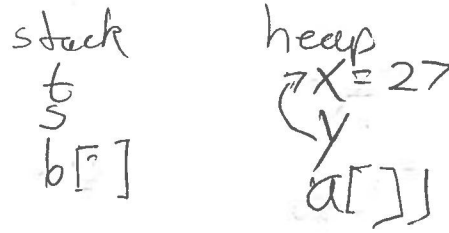 stack
t
s
b[ ]
heap
x = 27
y
a[ ]